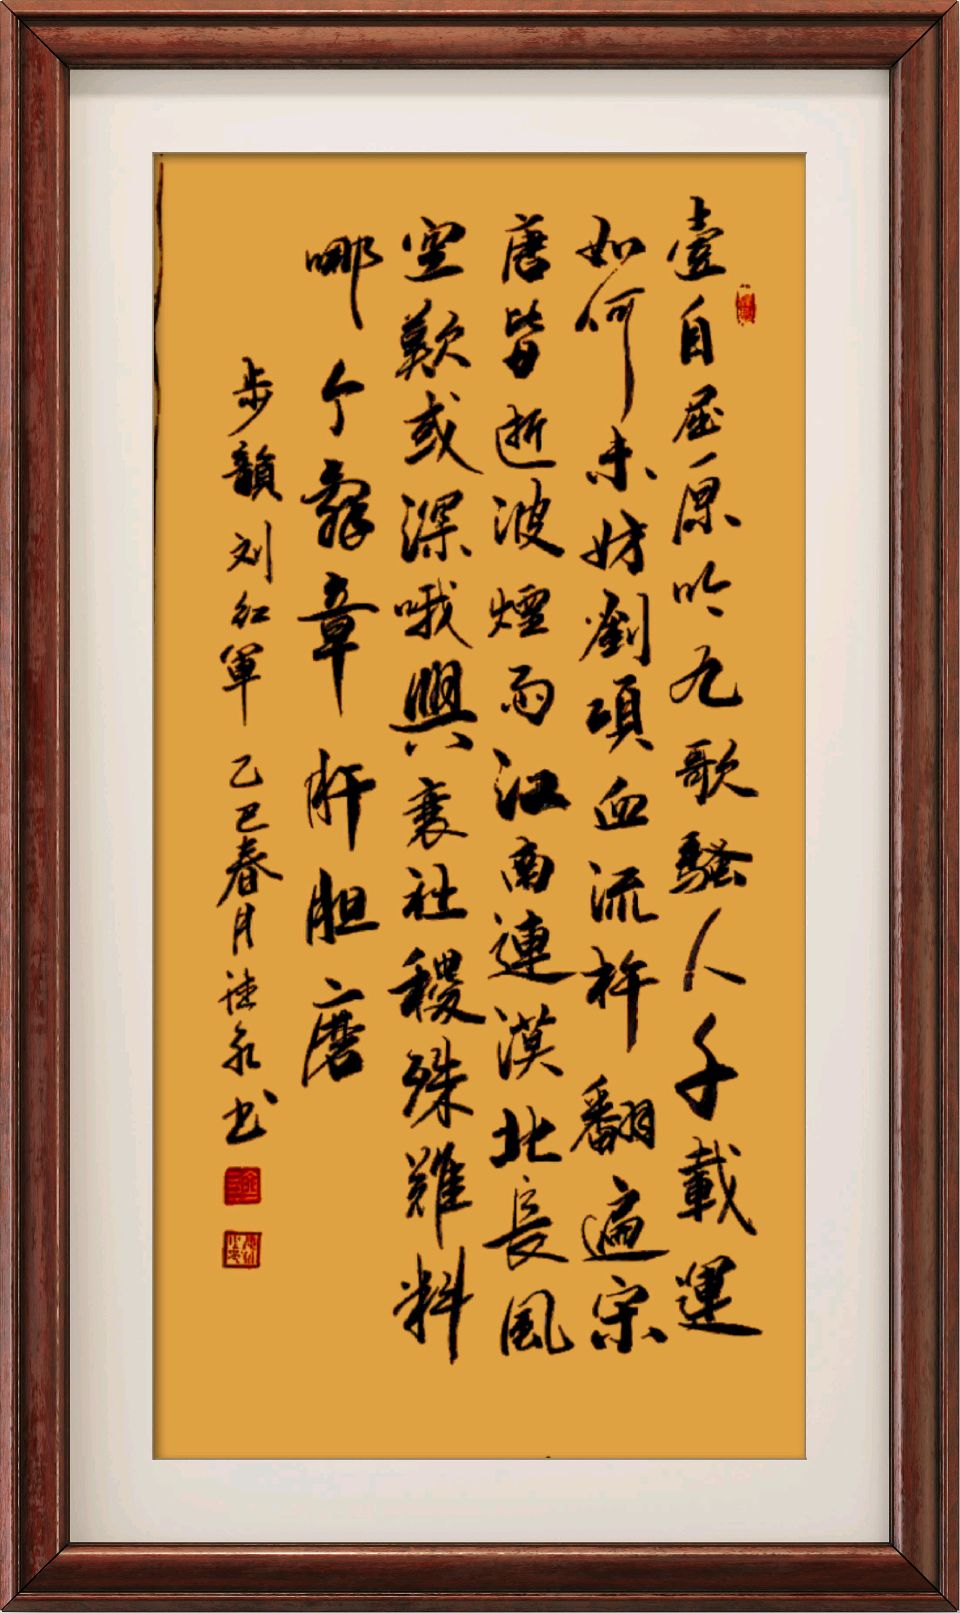 壹自屈原吟九歌騷人千載運
如何未妨劉項血流杵翻遍宋
唐皆逝波煙雨江南連漠北長風
空歎或深哦興衰社稷殊難料
哪个辭章肝胆磨
步韻刘红軍乙巳春月德永书